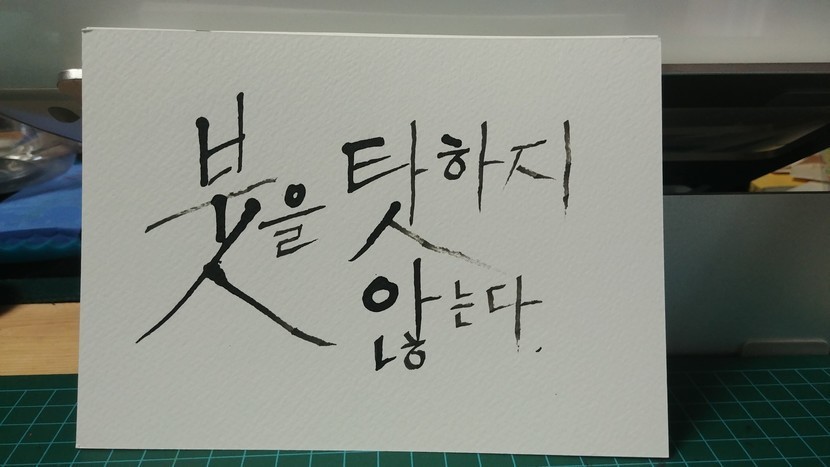 붓을 탓하지
않는다.